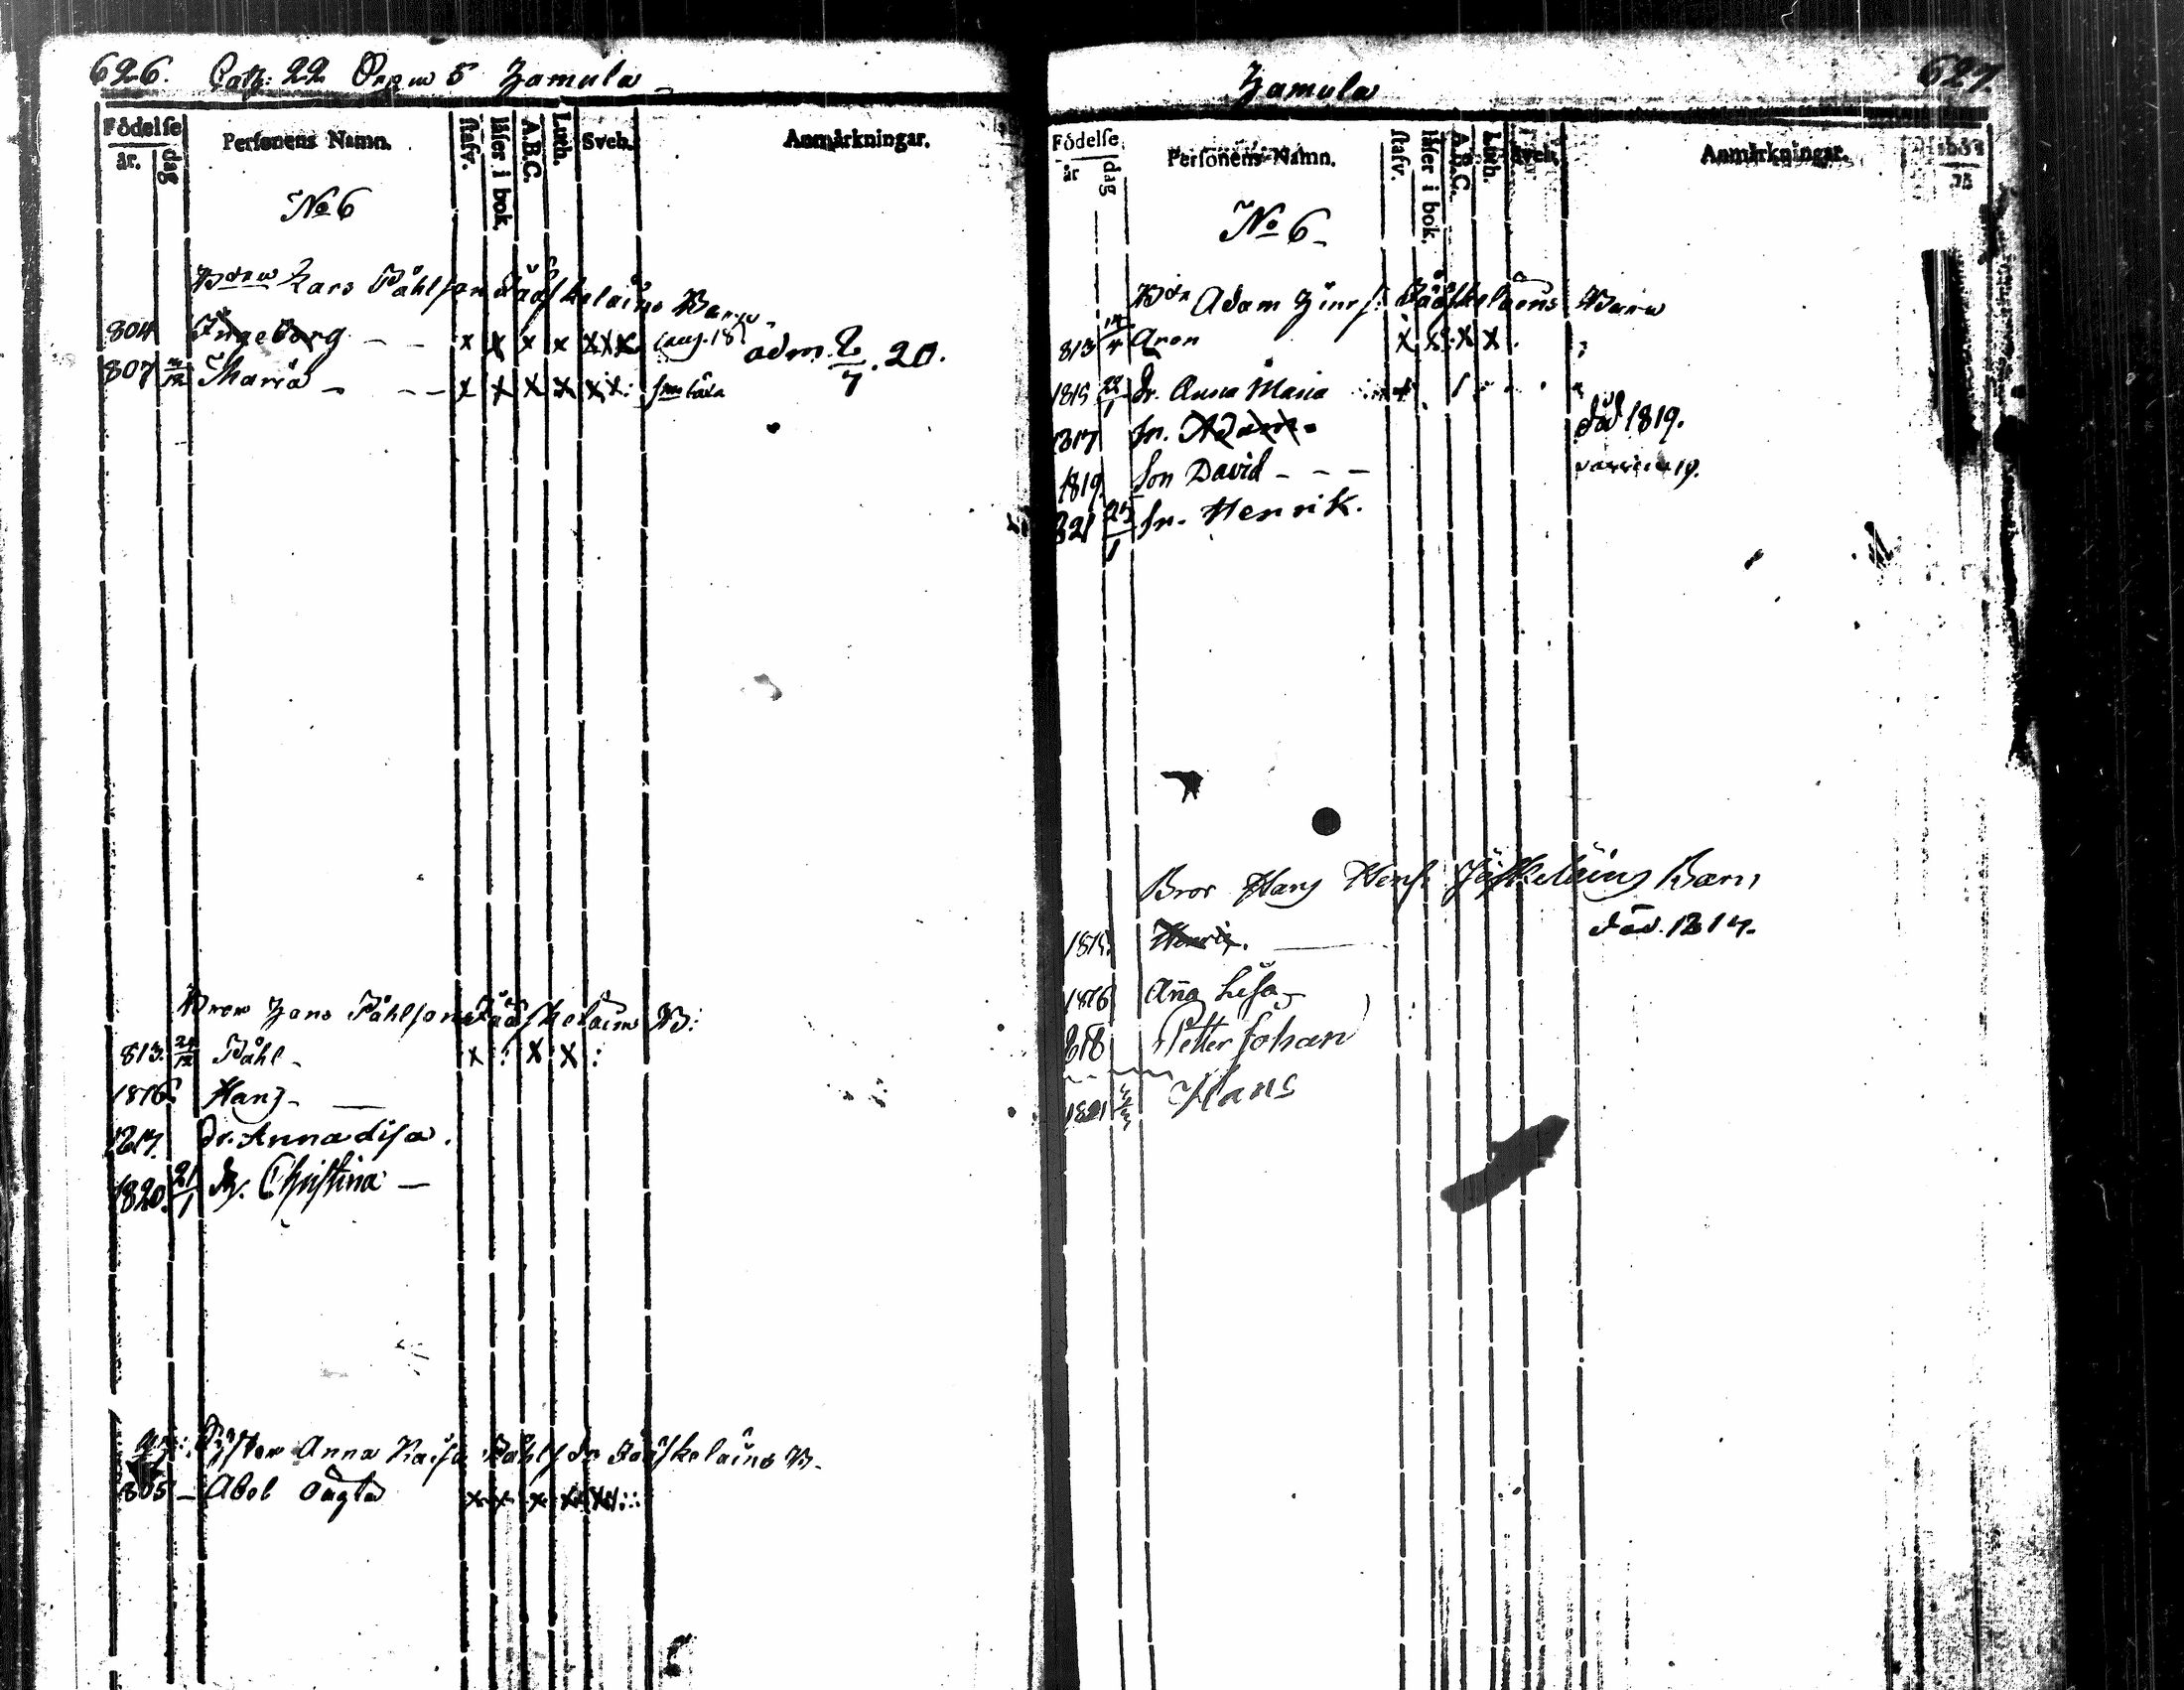 626. Cath: 22 Oravi 5 Jamula
Födelse
år. dag
Personens Namn.
stafv.
läser i bok.
A.B.C.
Luth.
Sveb.
Anmärkningar.
No 6
Lars Påhlson Jääskeläins Barn
804 Ingeborg - - x x x x x x x
adm. 2/7. 20.
807 Maria - - - x x x x x x
Jääskeläins B:
813. 24/12 Påhl - x : x x :
1816 Hans - —
1817. dr. Anna Lisa.
1820. 21/1 dr. Christina —
Syster Anna Kaisa Påhls dr Jääskeläins B.
805 - Abel x x x x x x
Jamula
627.
Födelse.
år dag
Personens Namn.
stafv.
läser i bok.
A.B.C.
Luth.
Sveb.
Anmärkningar.
No 6 -
Adam Jääskeläins Barn
813 Aron x x x x
1815 22/1 dr. Anna Maria
1817 sn. Adam - död 1819.
1819. Son David - - -
821 25/1 sn. Henrik.
Bror Hans Jääskeläins Barn
Henric. — död. 1814.
1816 Aña Lisa -
818 Petter Johan
1821 Hans